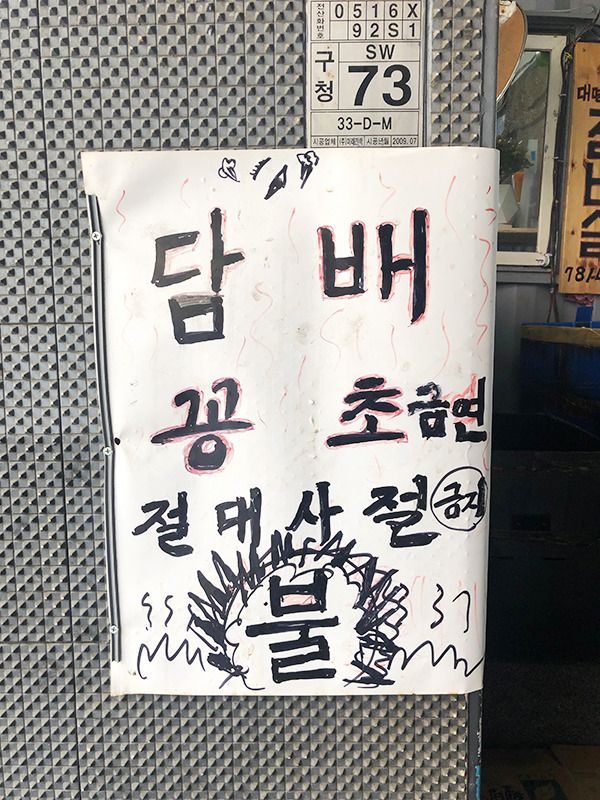 전산화번호 0516X
92S1
구청 SW
73
33-D-M
시공업체 시공년월 2009.07
담 배
꽁 초 금연
절 대 사 절 금지
불
781